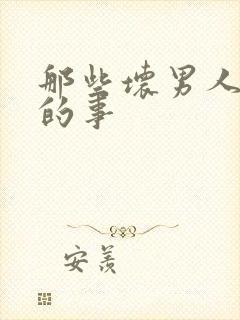 那些坏男人
的事
安羡